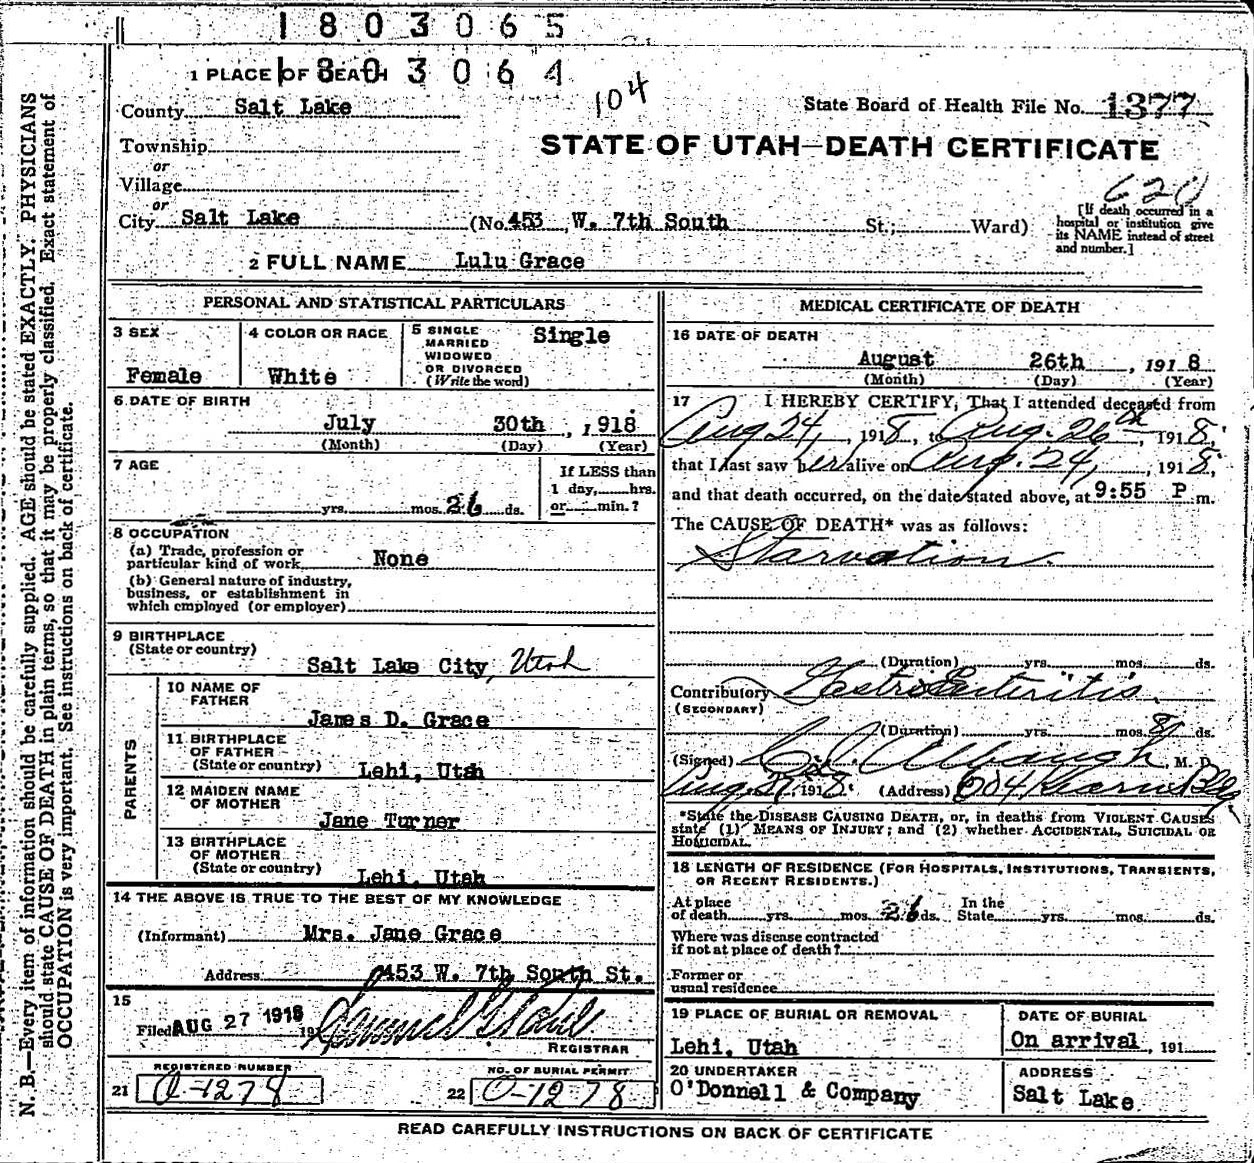 1803065
1803064
1 PLACE OF DEATH
104
County Salt Lake
State Board of Health File No. 1377
STATE OF UTAH—DEATH CERTIFICATE
Township
or
Village
or
City Salt Lake (No. 453 W. 7th South St.; Ward)
[If death occurred in a hospital or institution give its NAME instead of street and number.]
2 FULL NAME Lulu Grace
PERSONAL AND STATISTICAL PARTICULARS
3 SEX
Female
4 COLOR OR RACE
White
5 SINGLE MARRIED WIDOWED OR DIVORCED (Write the word)
Single
6 DATE OF BIRTH
July 30th, 1918
(Month) (Day) (Year)
7 AGE
yrs. mos. 26 ds.
If LESS than 1 day, hrs. or min.?
8 OCCUPATION
(a) Trade, profession or particular kind of work None
(b) General nature of industry, business, or establishment in which employed (or employer)
9 BIRTHPLACE
(State or country)
Salt Lake City, Utah
PARENTS
10 NAME OF FATHER
James D. Grace
11 BIRTHPLACE OF FATHER
(State or country) Lehi, Utah
12 MAIDEN NAME OF MOTHER
Jane Turner
13 BIRTHPLACE OF MOTHER
(State or country) Lehi, Utah
14 THE ABOVE IS TRUE TO THE BEST OF MY KNOWLEDGE
(Informant) Mrs. Jane Grace
Address 453 W. 7th South St.
15
Filed AUG 27 1918 191
REGISTRAR
REGISTERED NUMBER
21 O-1278
NO. OF BURIAL PERMIT
22 O-1278
MEDICAL CERTIFICATE OF DEATH
16 DATE OF DEATH
August 26th, 1918
(Month) (Day) (Year)
17 I HEREBY CERTIFY, That I attended deceased from
Aug 24, 1918, to Aug. 26th, 1918,
that I last saw her alive on Aug. 24, 1918,
and that death occurred, on the date stated above, at 9:55 P m.
The CAUSE OF DEATH* was as follows:
Starvation.
(Duration) yrs. mos. ds.
Contributory Gastro Enteritis.
(SECONDARY)
(Duration) yrs. mos. 8 ds.
(Signed) M. D.
Aug. 27, 1918. (Address) 604 Kearns Bldg
*State the DISEASE CAUSING DEATH, or, in deaths from VIOLENT CAUSES
state (1) MEANS OF INJURY; and (2) whether ACCIDENTAL, SUICIDAL OR
HOMICIDAL.
18 LENGTH OF RESIDENCE (FOR HOSPITALS, INSTITUTIONS, TRANSIENTS,
OR RECENT RESIDENTS.)
At place of death yrs. mos. 26 ds. In the State yrs. mos. ds.
Where was disease contracted
if not at place of death?
Former or
usual residence
19 PLACE OF BURIAL OR REMOVAL
Lehi, Utah
DATE OF BURIAL
On arrival, 191
20 UNDERTAKER
O'Donnell & Company
ADDRESS
Salt Lake
READ CAREFULLY INSTRUCTIONS ON BACK OF CERTIFICATE
N. B.—Every item of information should be carefully supplied. AGE should be stated EXACTLY. PHYSICIANS
should state CAUSE OF DEATH in plain terms, so that it may be properly classified. Exact statement of
OCCUPATION is very important. See instructions on back of certificate.